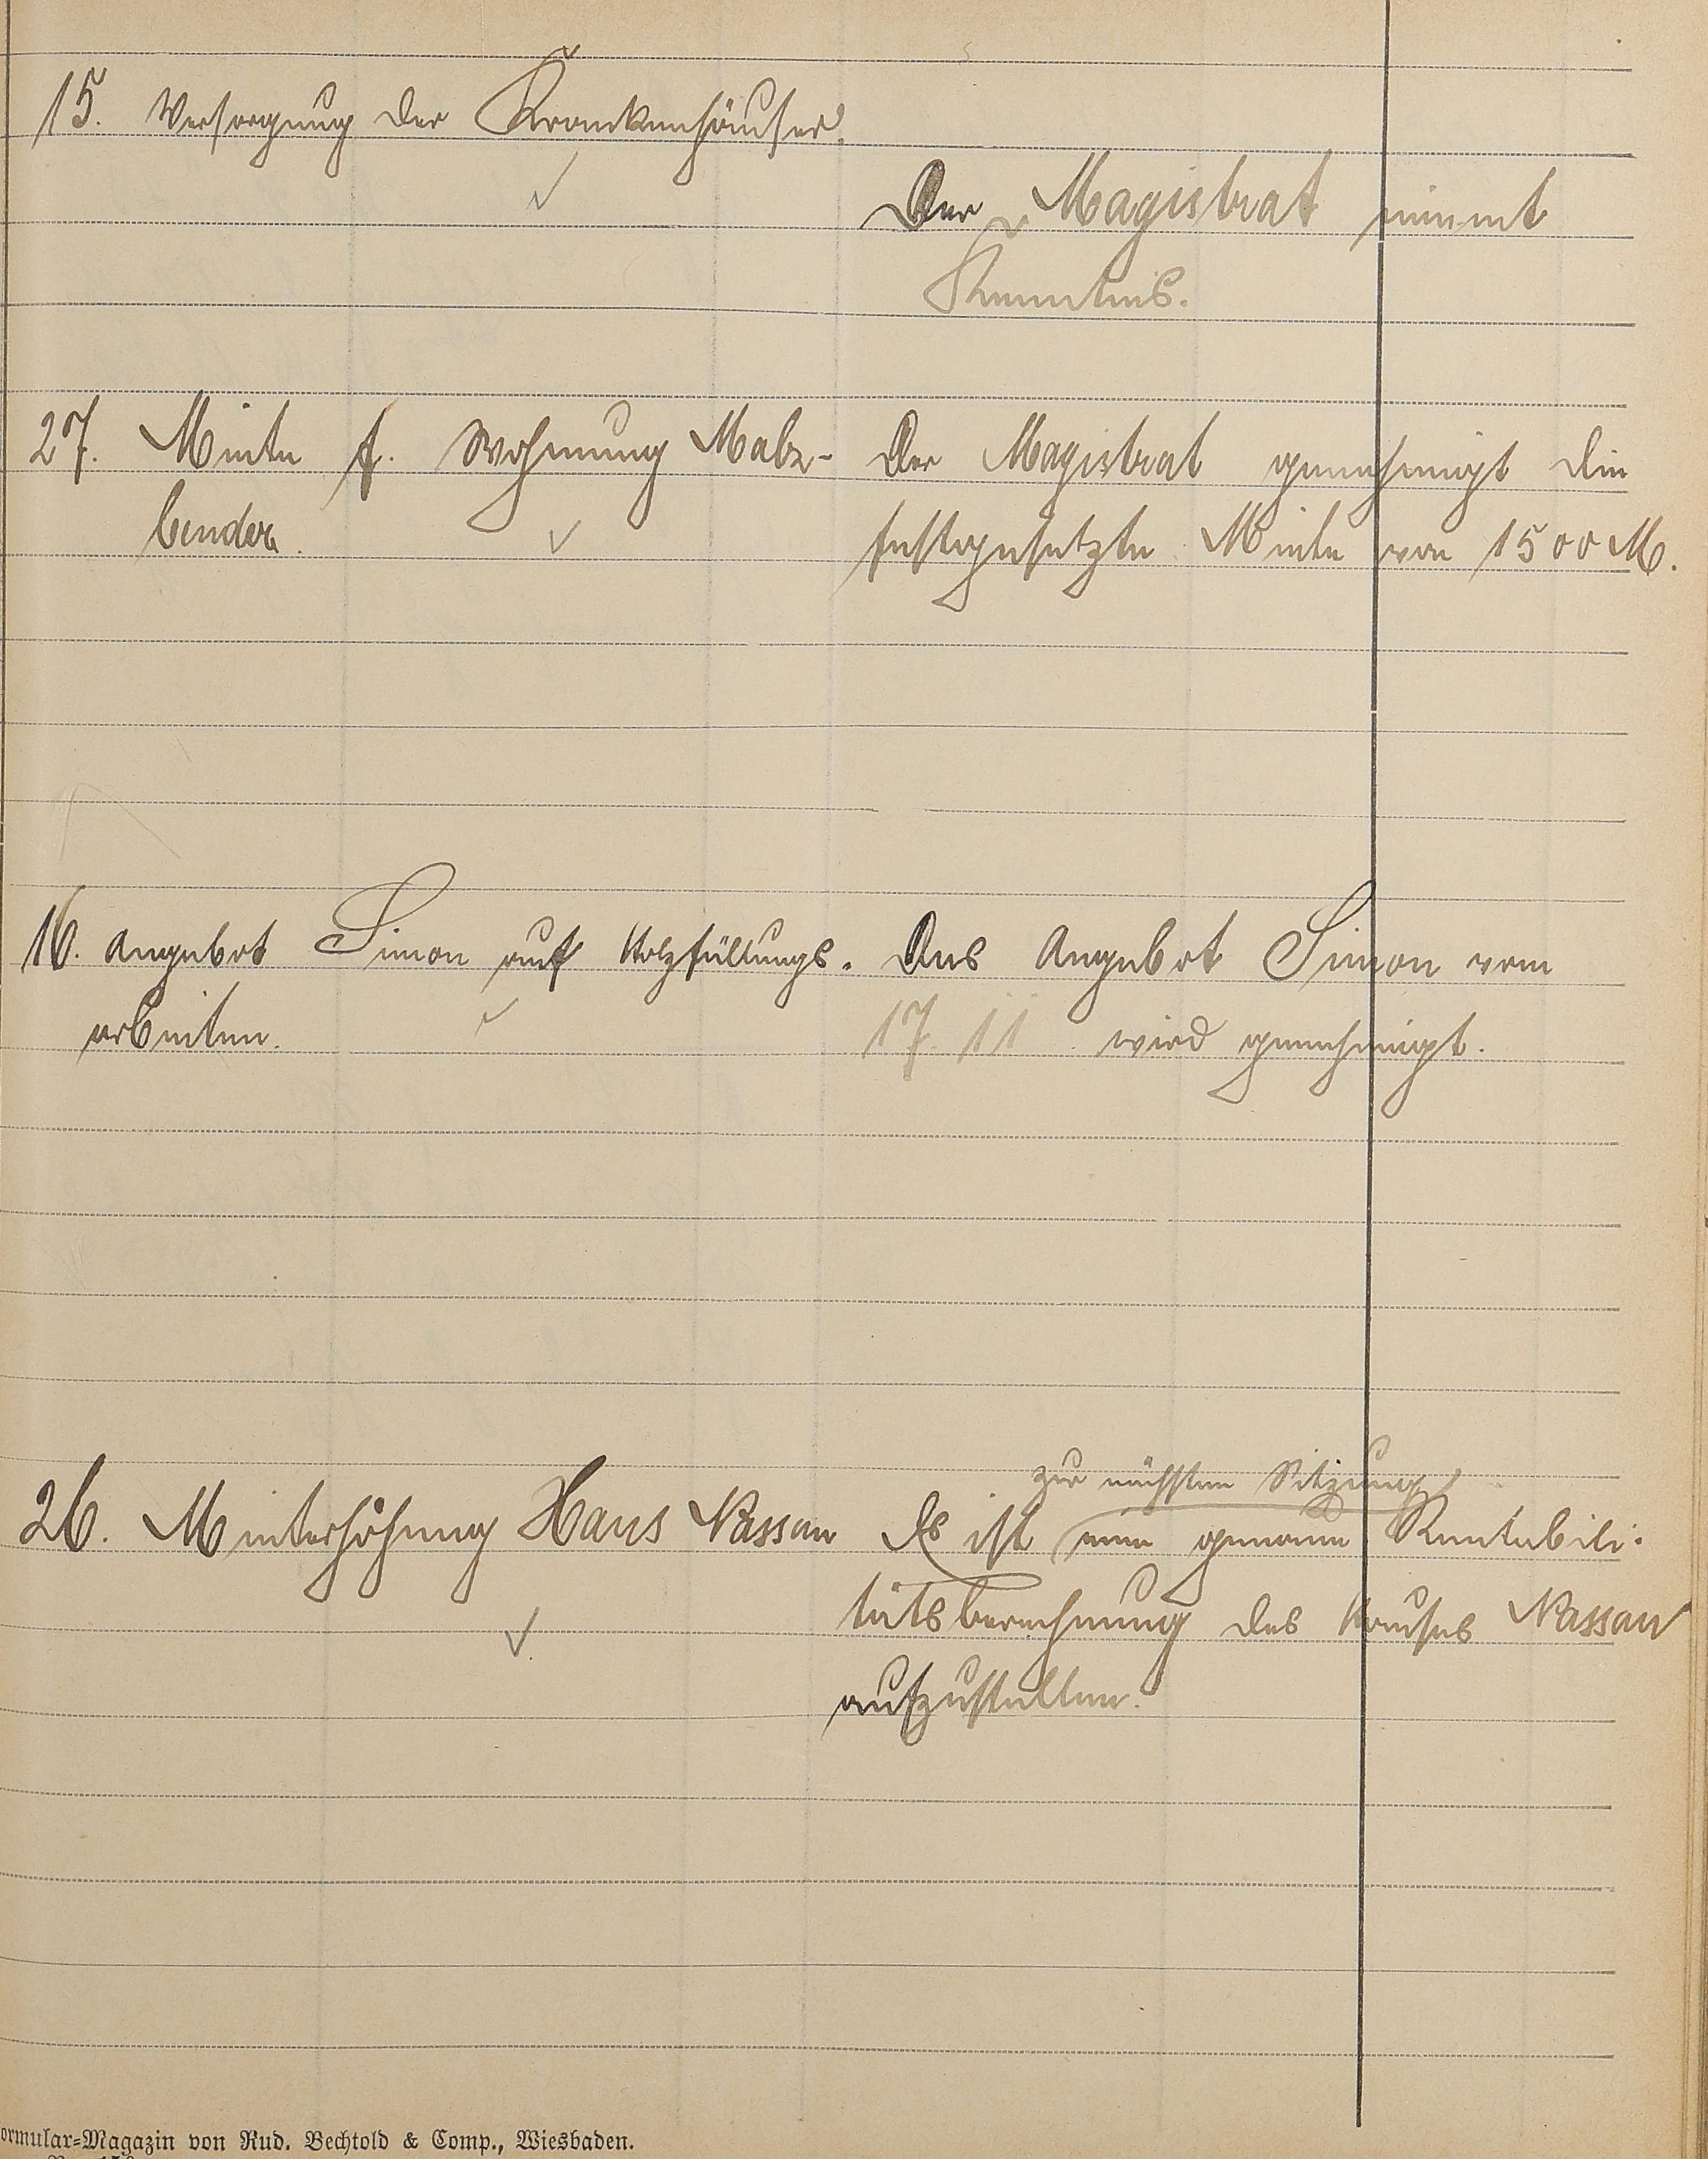 15. Versorgung der Krankenhäuser.
Der Magistrat nimmt
Kenntnis.
27. Miete f. Wohnung Malz-
bender.
Der Magistrat genehmigt die
festgesetzte Miete von 1500 M.
16. Angebot Simon auf Holzfällungs-
arbeiten.
Das Angebot Simon vom
17. 11. wird genehmigt.
26. Mieterhöhung Haus Nassau
zur nächsten Sitzung
Es ist eine genaue Rentabili-
tätsberechnung des Hauses Nassau
aufzustellen.
ormular-Magazin von Rud. Bechtold & Comp., Wiesbaden.